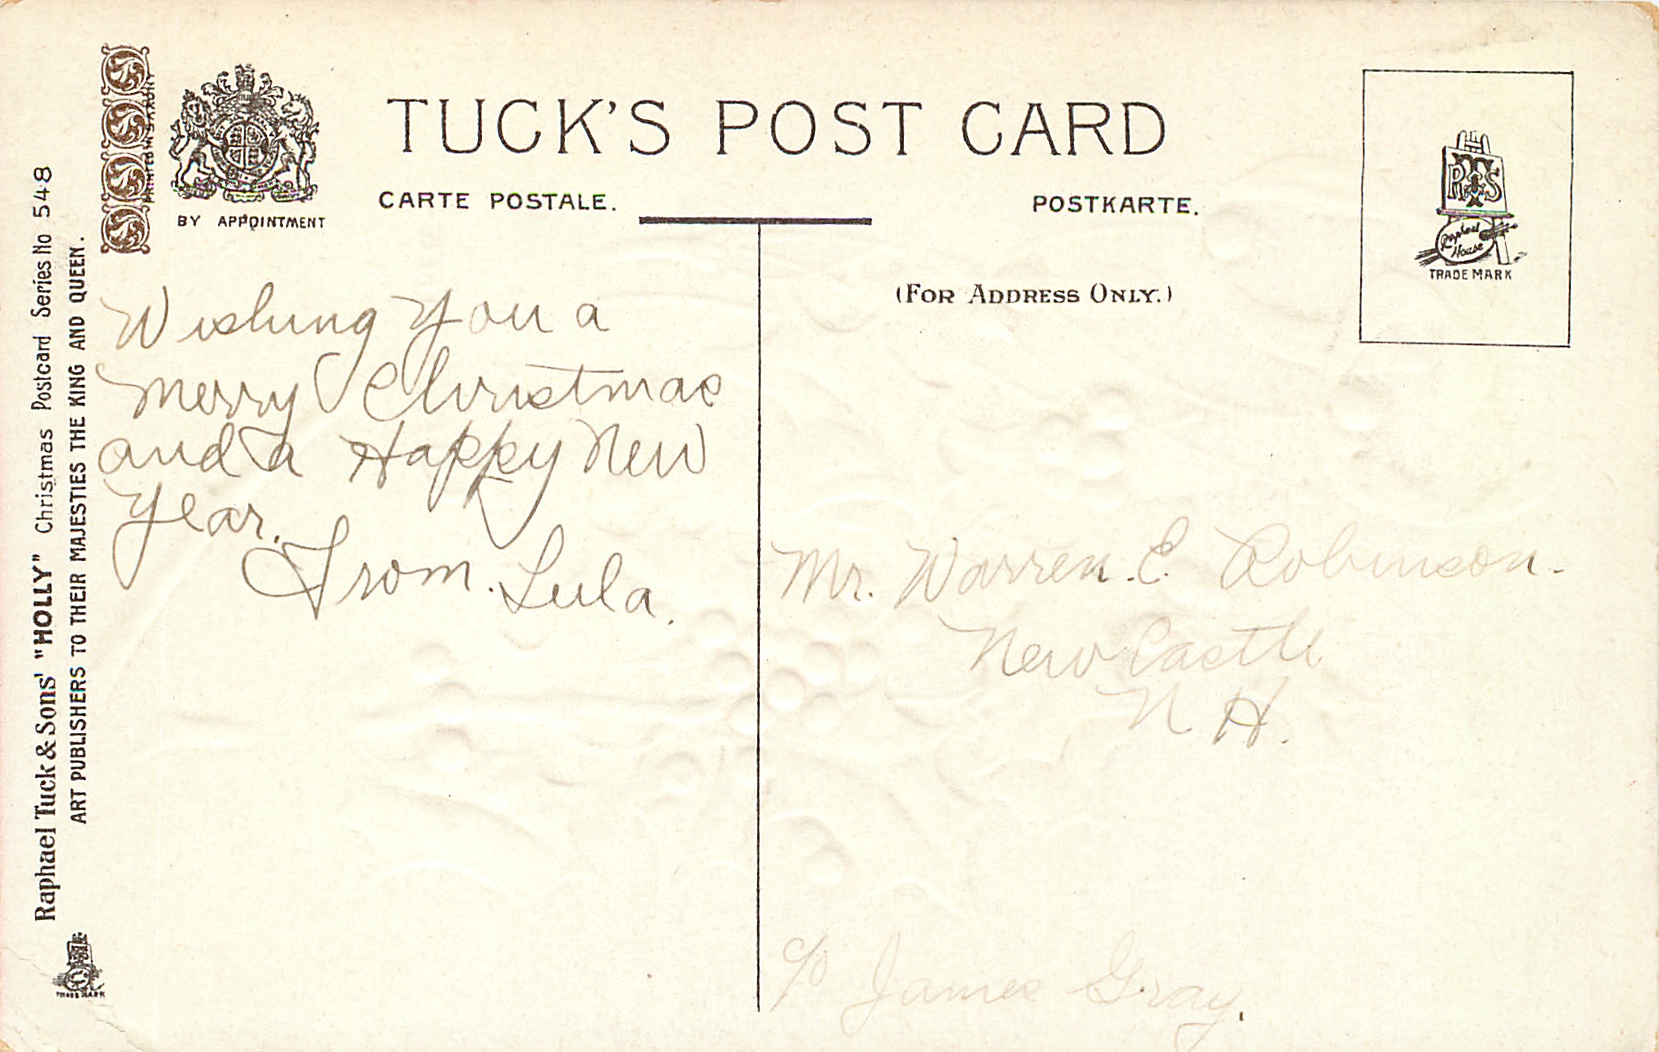 TUCK'S POST CARD
CARTE POSTALE.
POSTKARTE.
BY APPOINTMENT
PRINTED IN SAXONY
(FOR ADDRESS ONLY.)
RTS
Raphael
House
TRADE MARK
Raphael Tuck & Sons' "HOLLY" Christmas Postcard Series No 548
ART PUBLISHERS TO THEIR MAJESTIES THE KING AND QUEEN.
TRADE MARK
Wishing you a
Merry Christmas
and a Happy New
Year.
From. Lula.
Mr. Warren. E. Robinson.
New Castle
N H.
c/o James Gray.